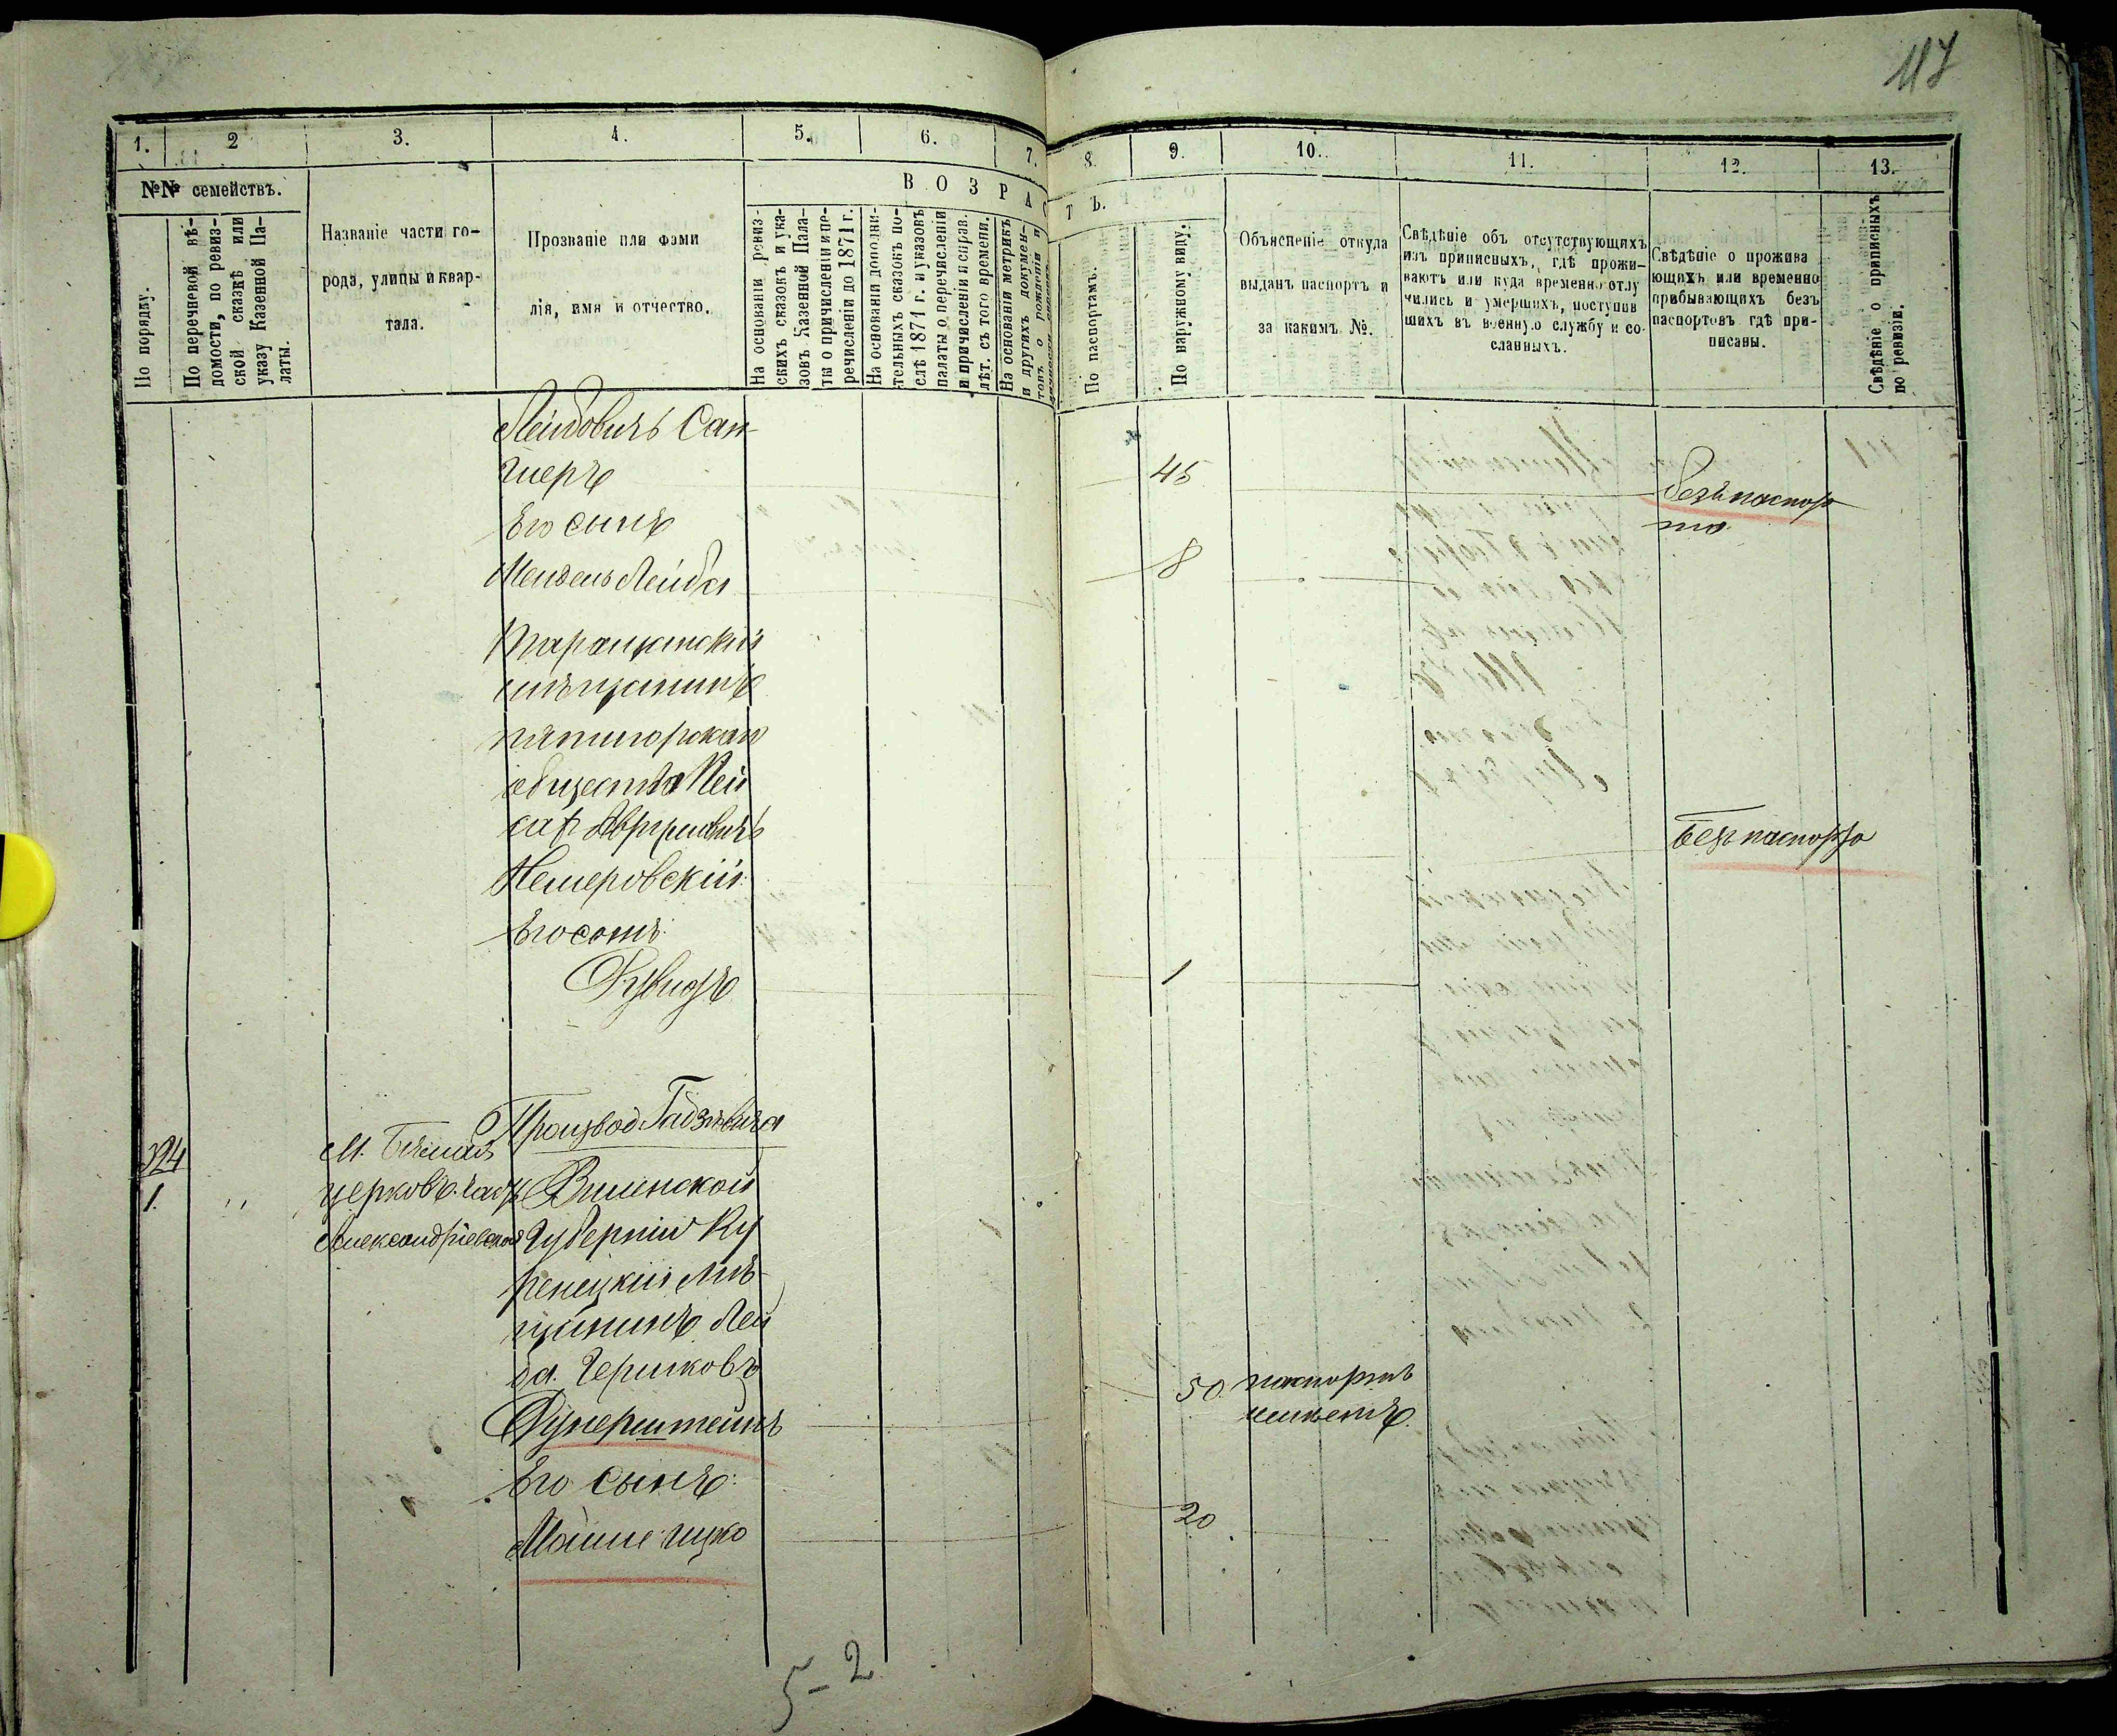 117
1. 2 3. 4. 5. 6. 7. 8. 9. 10. 11. 12. 13.
№№ семействъ.
В О З Р А С Т Ъ.
По порядку.
По перечневой вѣ-
домости, по ревиз-
ской сказкѣ или
указу Казенной Па-
латы.
Названіе части го-
рода, улицы и квар-
тала.
Прозваніе или фами
лія, имя и отчество.
На основаніи ревиз-
скихъ сказокъ и ука-
зовъ Казенной Пала-
ты о причисленіи и пе-
речисленіи до 1871 г.
На основаніи дополни-
тельныхъ сказокъ по-
слѣ 1871 г. и указовъ
палаты о перечисленіи
и причисленіи и справ.
лѣт. съ того времени.
На основаніи метрикъ
и другихъ докумен-
товъ о рожденіи и
По паспортамъ.
По наружному виду.
Объясненіе откуда
выданъ паспортъ и
за какимъ №.
Свѣдѣніе объ отсутствующихъ
изъ приписныхъ, гдѣ прожи-
ваютъ или куда временно отлу
чились и умершихъ, поступив
шихъ въ военную службу и со-
сланныхъ.
Свѣдѣніе о прожива
ющихъ или временно
прибывающихъ безъ
паспортовъ гдѣ при-
писаны.
Свѣдѣніе о приписныхъ
по ревизіи.
Лейбовичъ Сан-
гиеръ
45
безъ паспор
та
Его сынъ
Мендель Лейба
8
Таращанскій
мѣщанинъ
пятигорскаго
общества Лей
Немеровскій
безъ паспорта
Его сынъ
Рувинъ
1
324
1
М. Бѣлая
церковь. часть
Александріевской
Виленской
Губерніи Ку
ренецкій мѣ-
щанинъ Лей
ба Гершковъ
Куперштейнъ
50 паспортъ
имѣетъ
Его сынъ:
Мойше Ицко
20
5-2